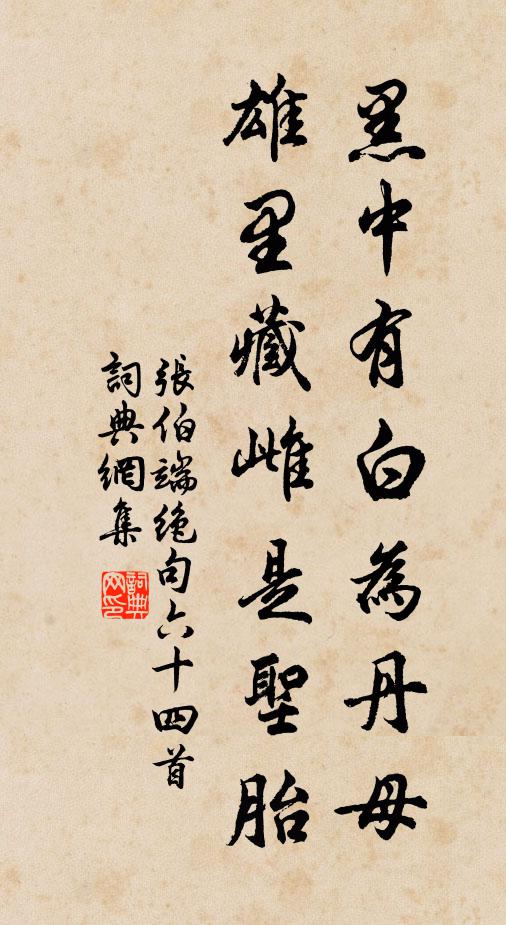 黑中有白為丹母
雄里藏雌是聖胎
張伯端絶句六十四首
詞典網集
詞典网印